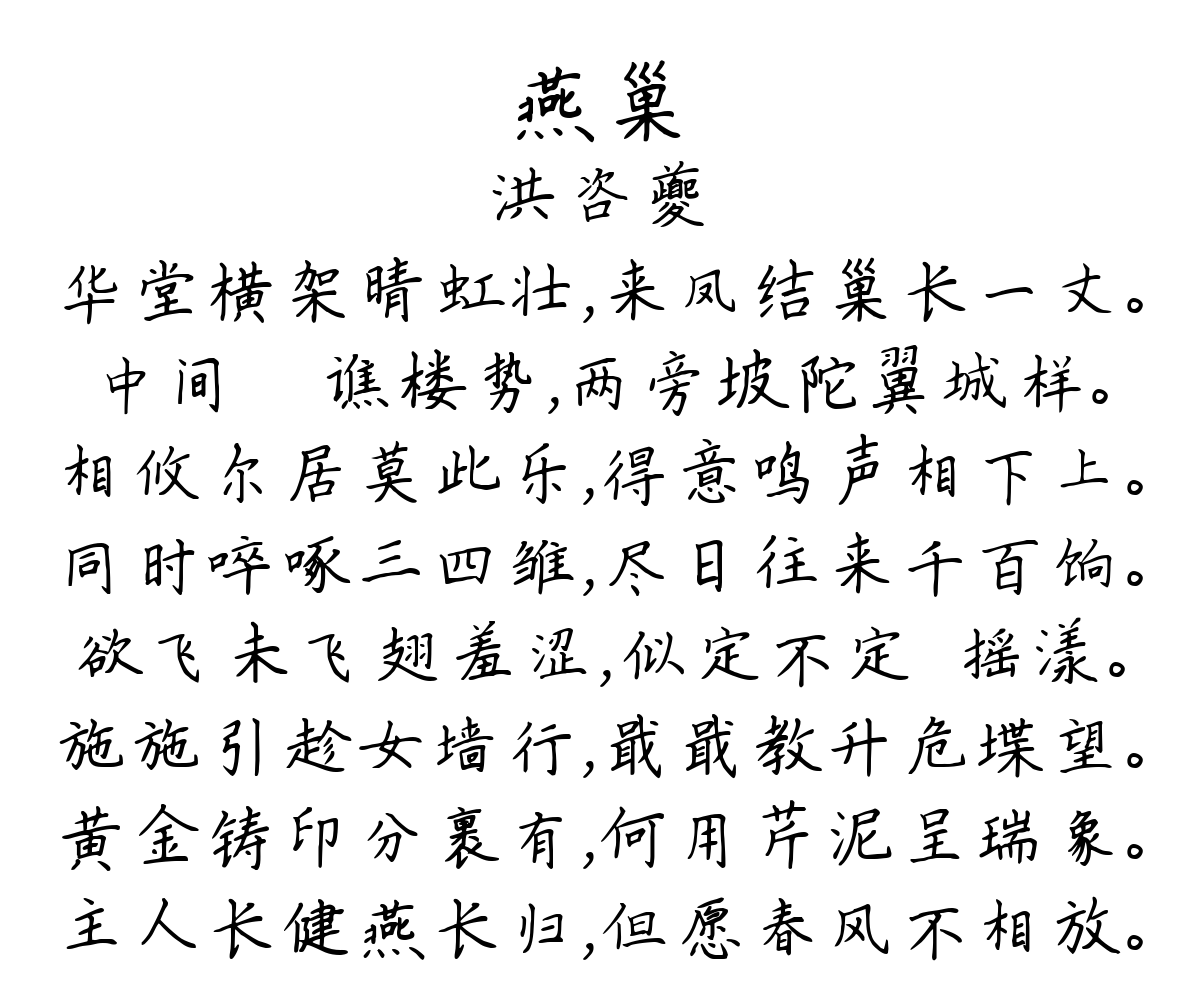 燕巢
洪咨夔
华堂横架晴虹壮,来凤结巢长一丈。
中间 谯楼势,两旁坡陀翼城样。
相攸尔居莫此乐,得意鸣声相下上。
同时啐啄三四雏,尽日往来千百饷。
欲飞未飞翅羞涩,似定不定 摇漾。
施施引趁女墙行,戢戢教升危堞望。
黄金铸印分裹有,何用芹泥呈瑞象。
主人长健燕长归,但愿春风不相放。